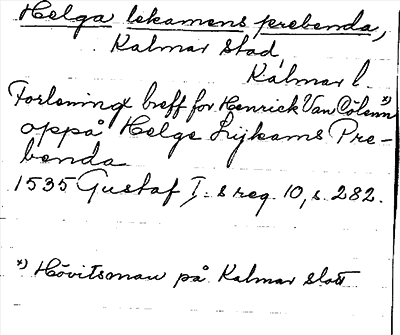 Helga lekamens prebenda,
Kalmar stad,
Kalmar l.
Forlening breff för Henrick Van Cölenn *)
oppå Helge Lijkams Pre-
benda
1535 Gustaf I:s reg. 10, s. 282.
*) Hövitsman på Kalmar slott